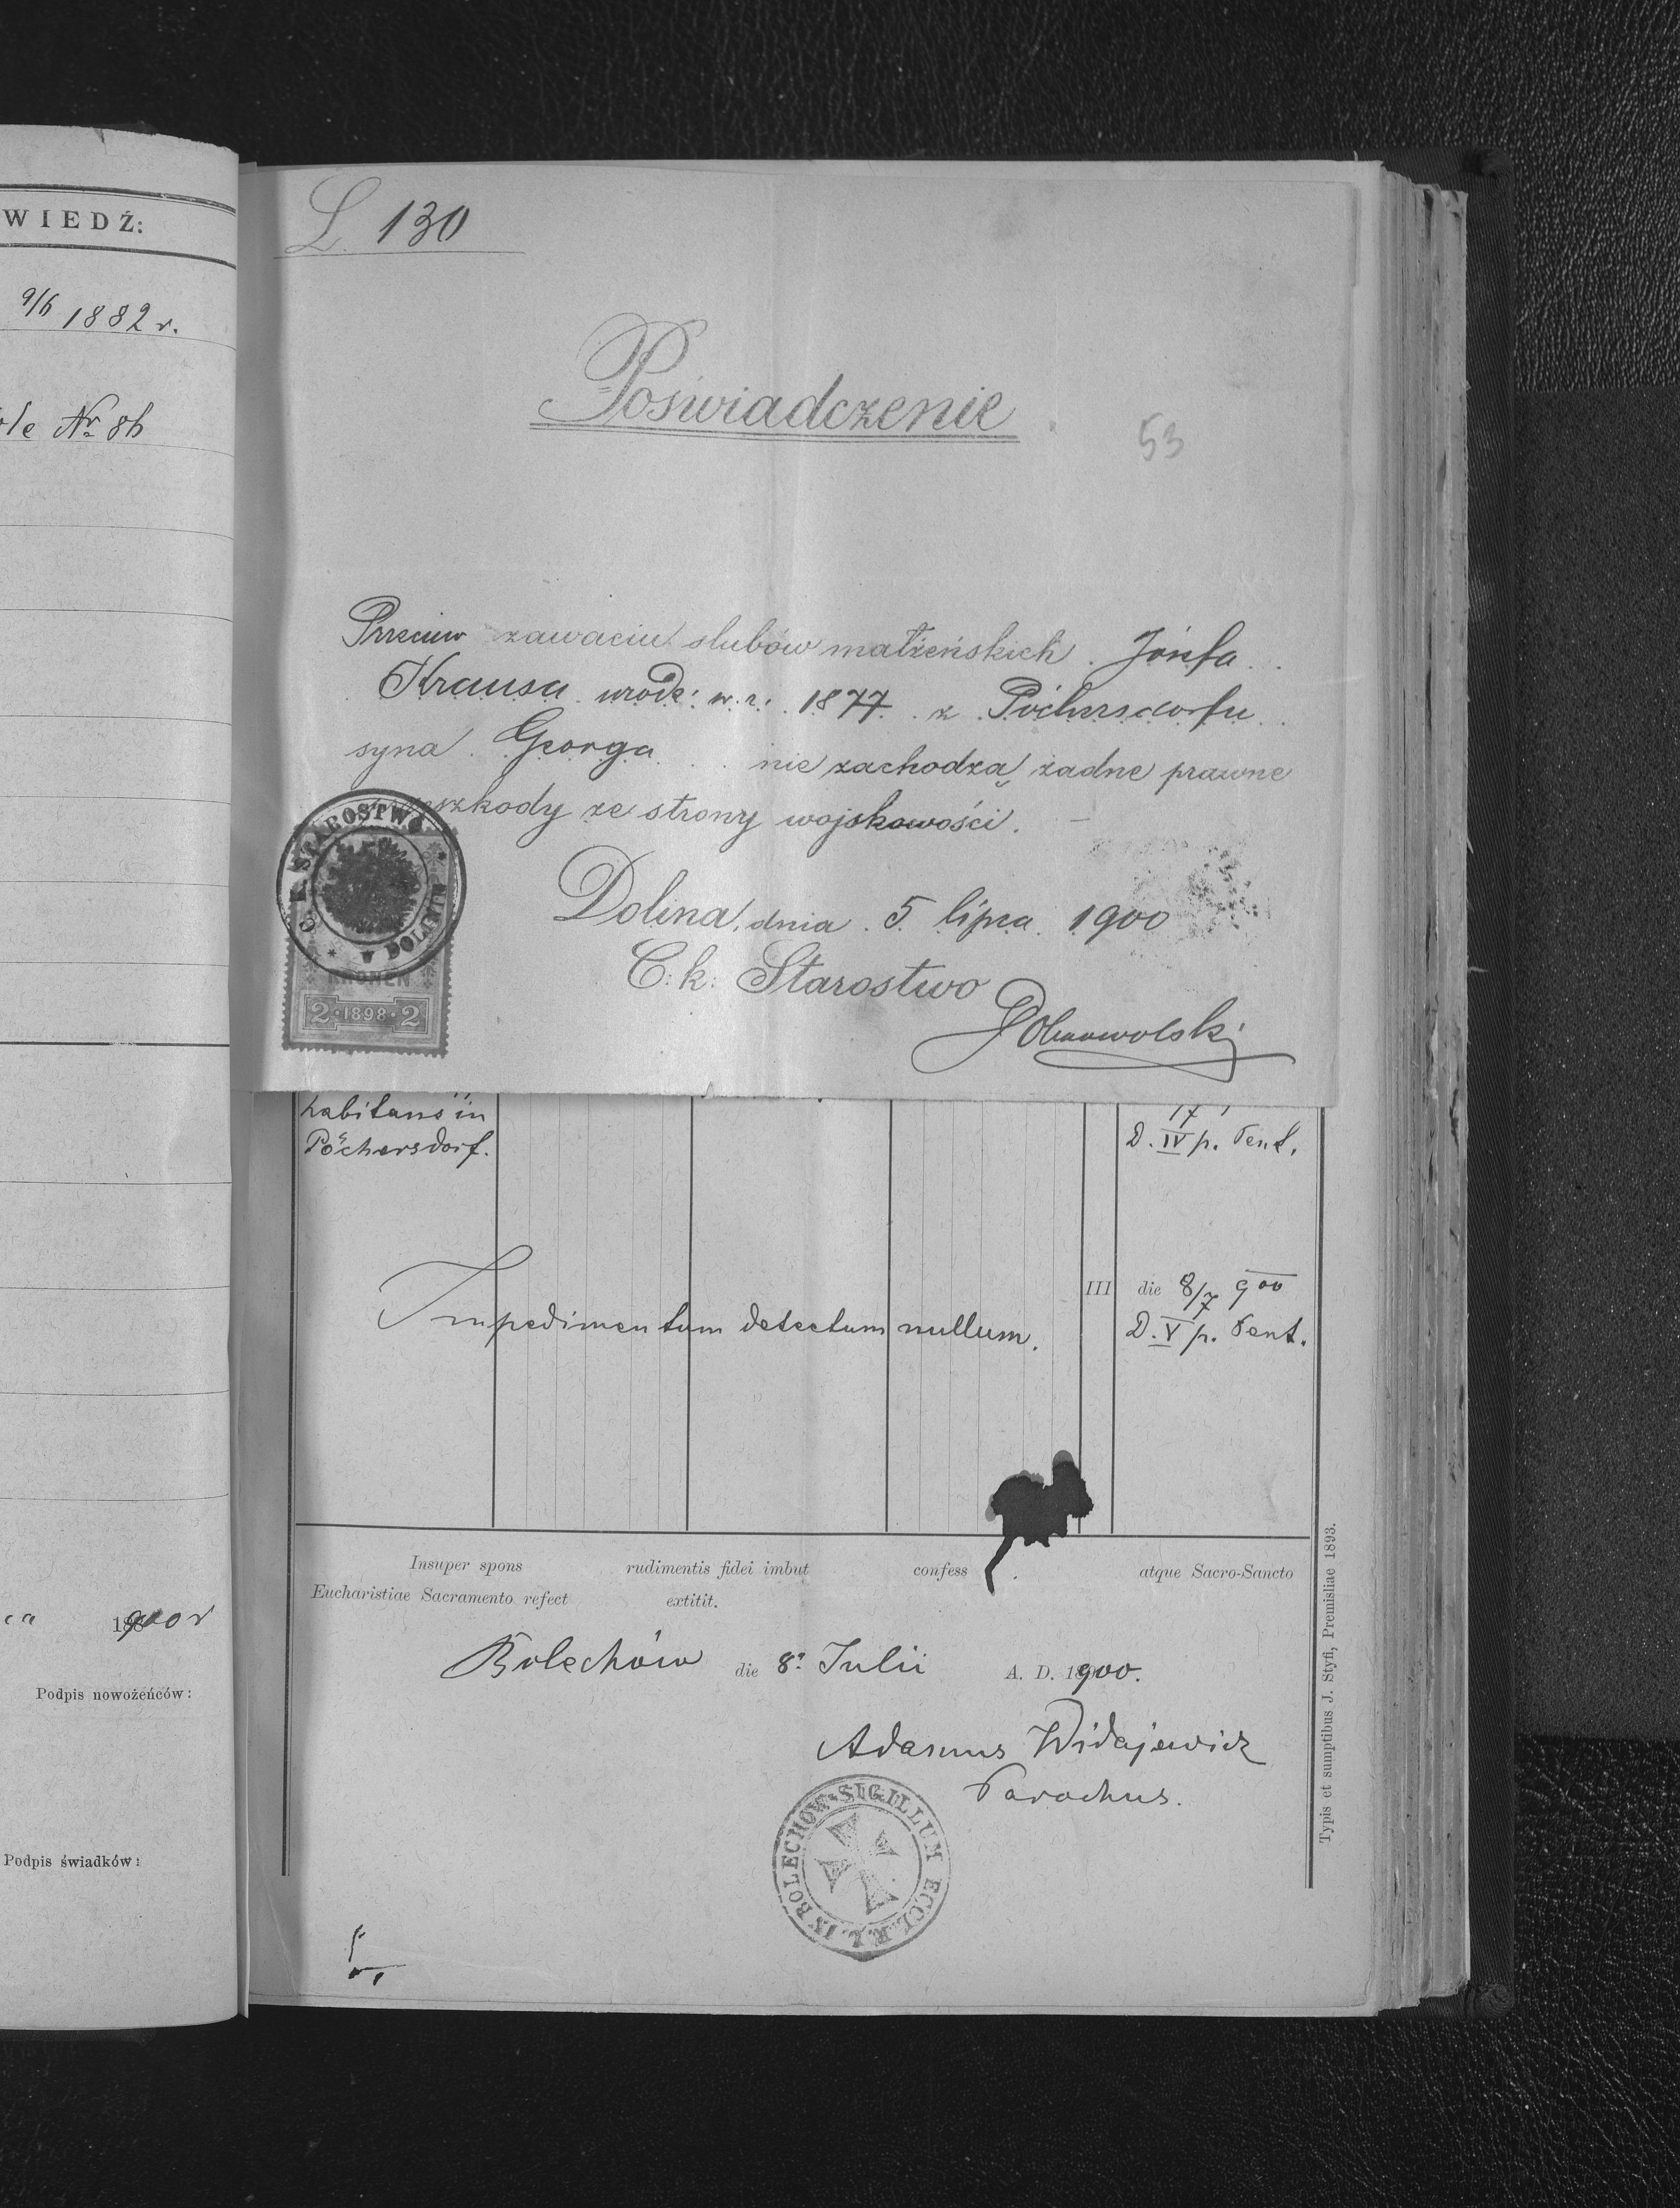 WIEDŹ:
9/6 1882 r.
Nr 86
900 r
Podpis nowożeńców:
Podpis świadków:
L. 130
Poświadczenie
53
Przeciw zawaciu slubów małżeńskich Józefa
Krausa urodz: w. r. 1877 z Pöchersdorfu
syna Georga nie zachodzą żadne prawne
przeszkody ze strony wojskowości.
C. K. STAROSTWO
* W DOLINIE *
KRONEN
2 · 1898 · 2
Dolina, dnia 5 lipca 1900
C. k. Starostwo
habitans in
Pöchersdorf.
D. IV p. Pent.
Impedimentum detectum nullum.
III die 8/7 900
D. V p. Pent.
Insuper spons rudimentis fidei imbut confess atque Sacro-Sancto
Eucharistiae Sacramento refect extitit.
Bolechów die 8. Julii A. D. 1900.
Adamus Widajewicz
Parochus.
SIGILLUM ECCL. R. L. IN BOLECHOW
Typis et sumptibus J. Styfi, Premisliae 1893.